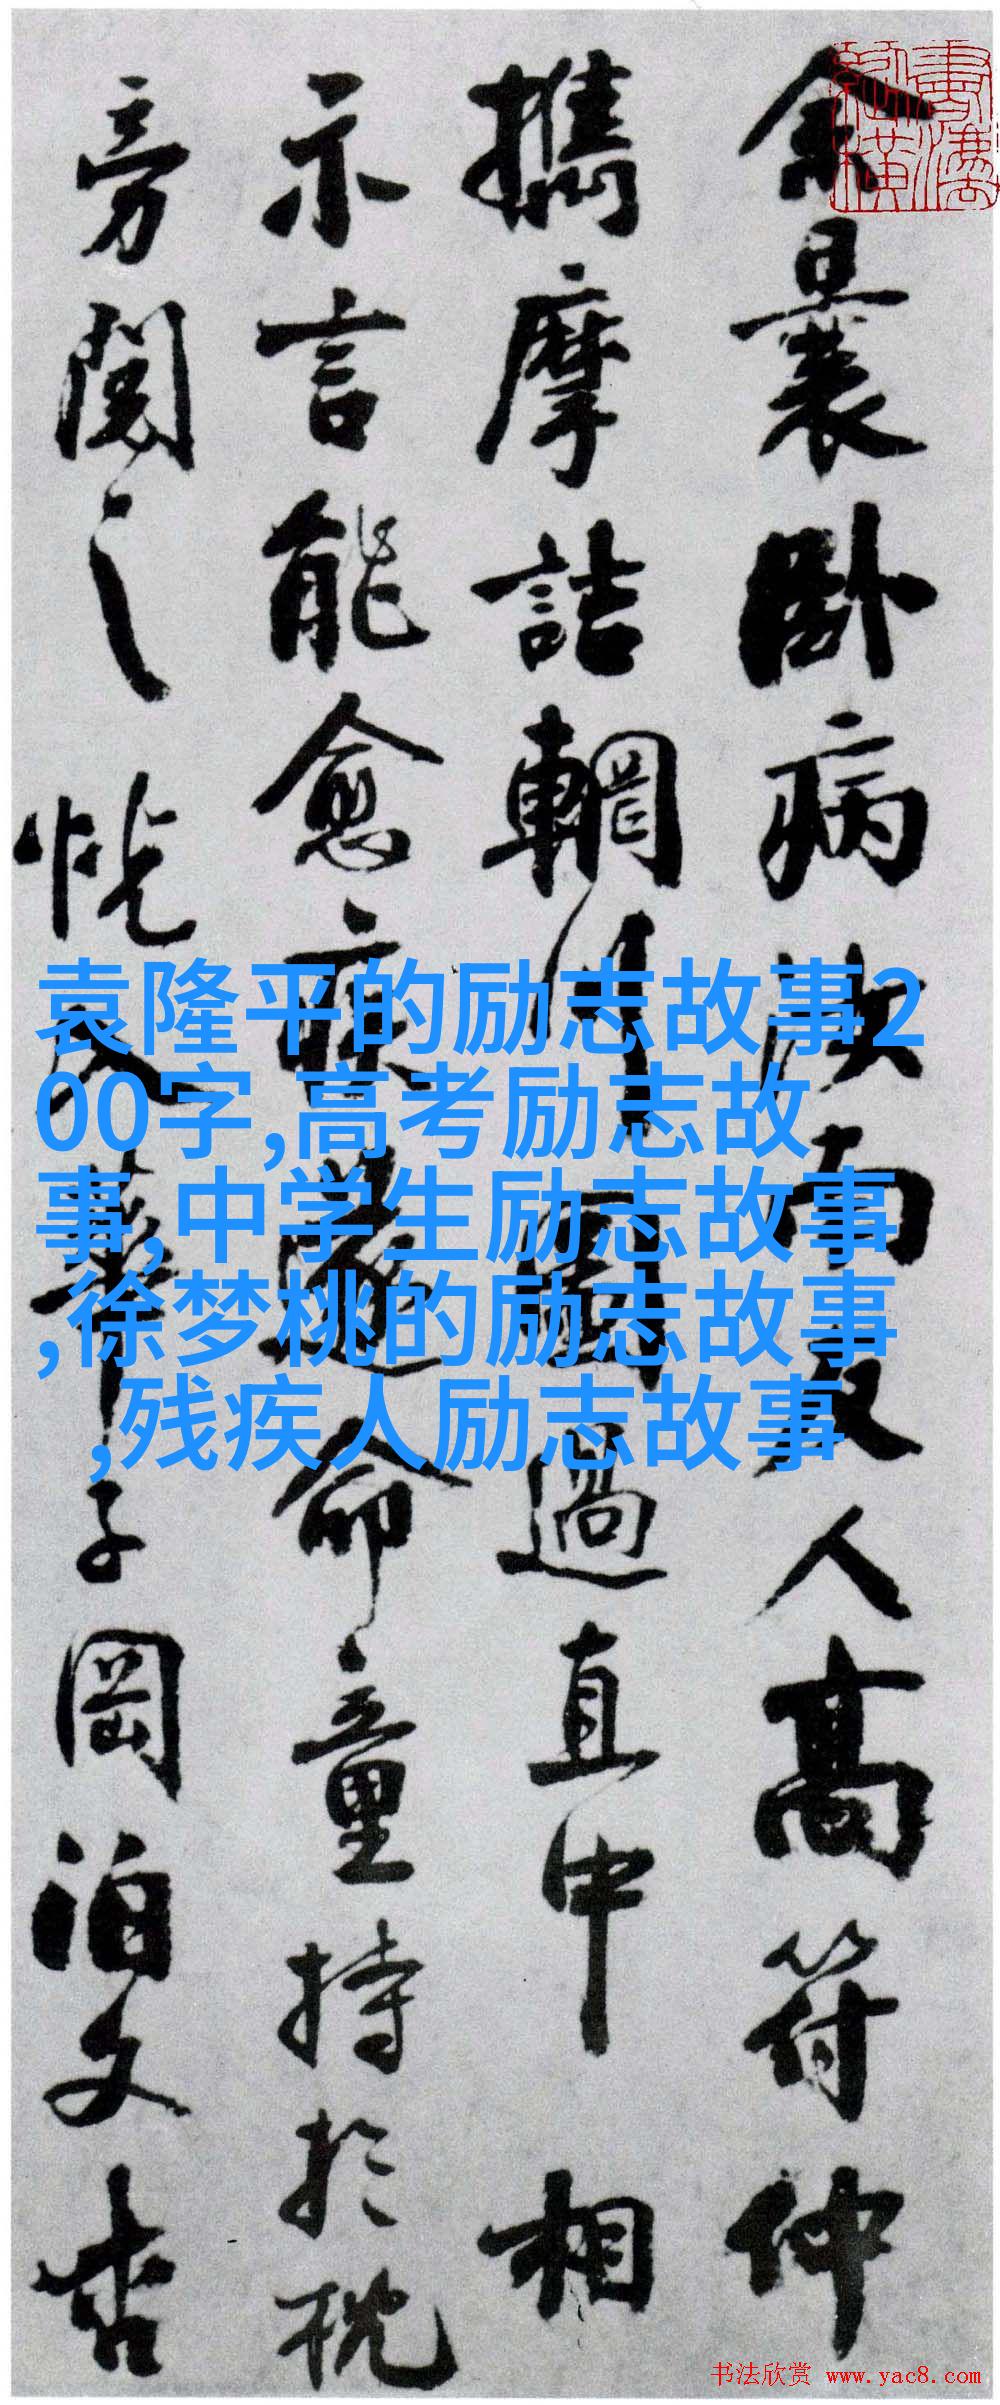 余曩卧病汝南友人高符仲
攜摩詰輞川圖過直中相
示言能愈疾遂命童持於枕
旁閱之恍入華子岡泊文杏
袁隆平的励志故事2
00字,高考励志故
事,中学生励志故事
,徐梦桃的励志故事
,残疾人励志故事
书法欣赏 www.yac8.com